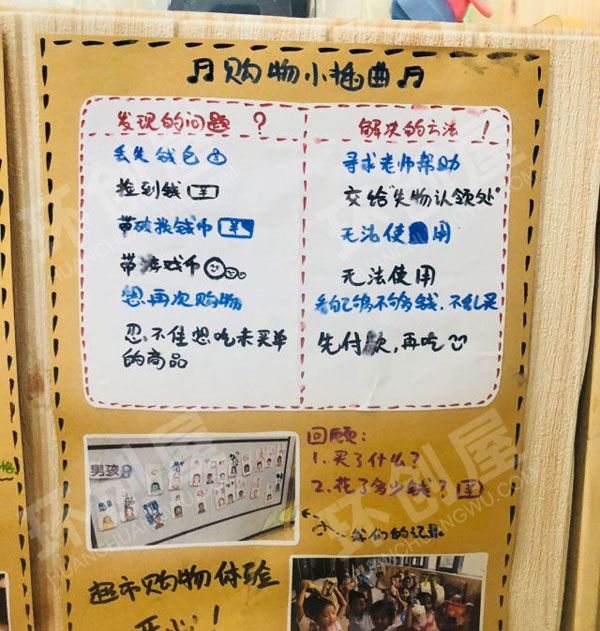 购物小插曲
发现的问题 ?
丢失钱包
捡到钱
带破损钱币
带游戏币
想再次购物
忍不住想吃未买单
的商品
解决的方法 !
寻求老师帮助
交给"失物认领处"
无法使用
无法使用
看自己够不够钱.不乱买
先付款,再吃
男孩8
回顾:
1.买了什么?
2.花了多少钱?
我们的记录
超市购物体验
开心!
环创屋
HUANCHUANGWU.COM